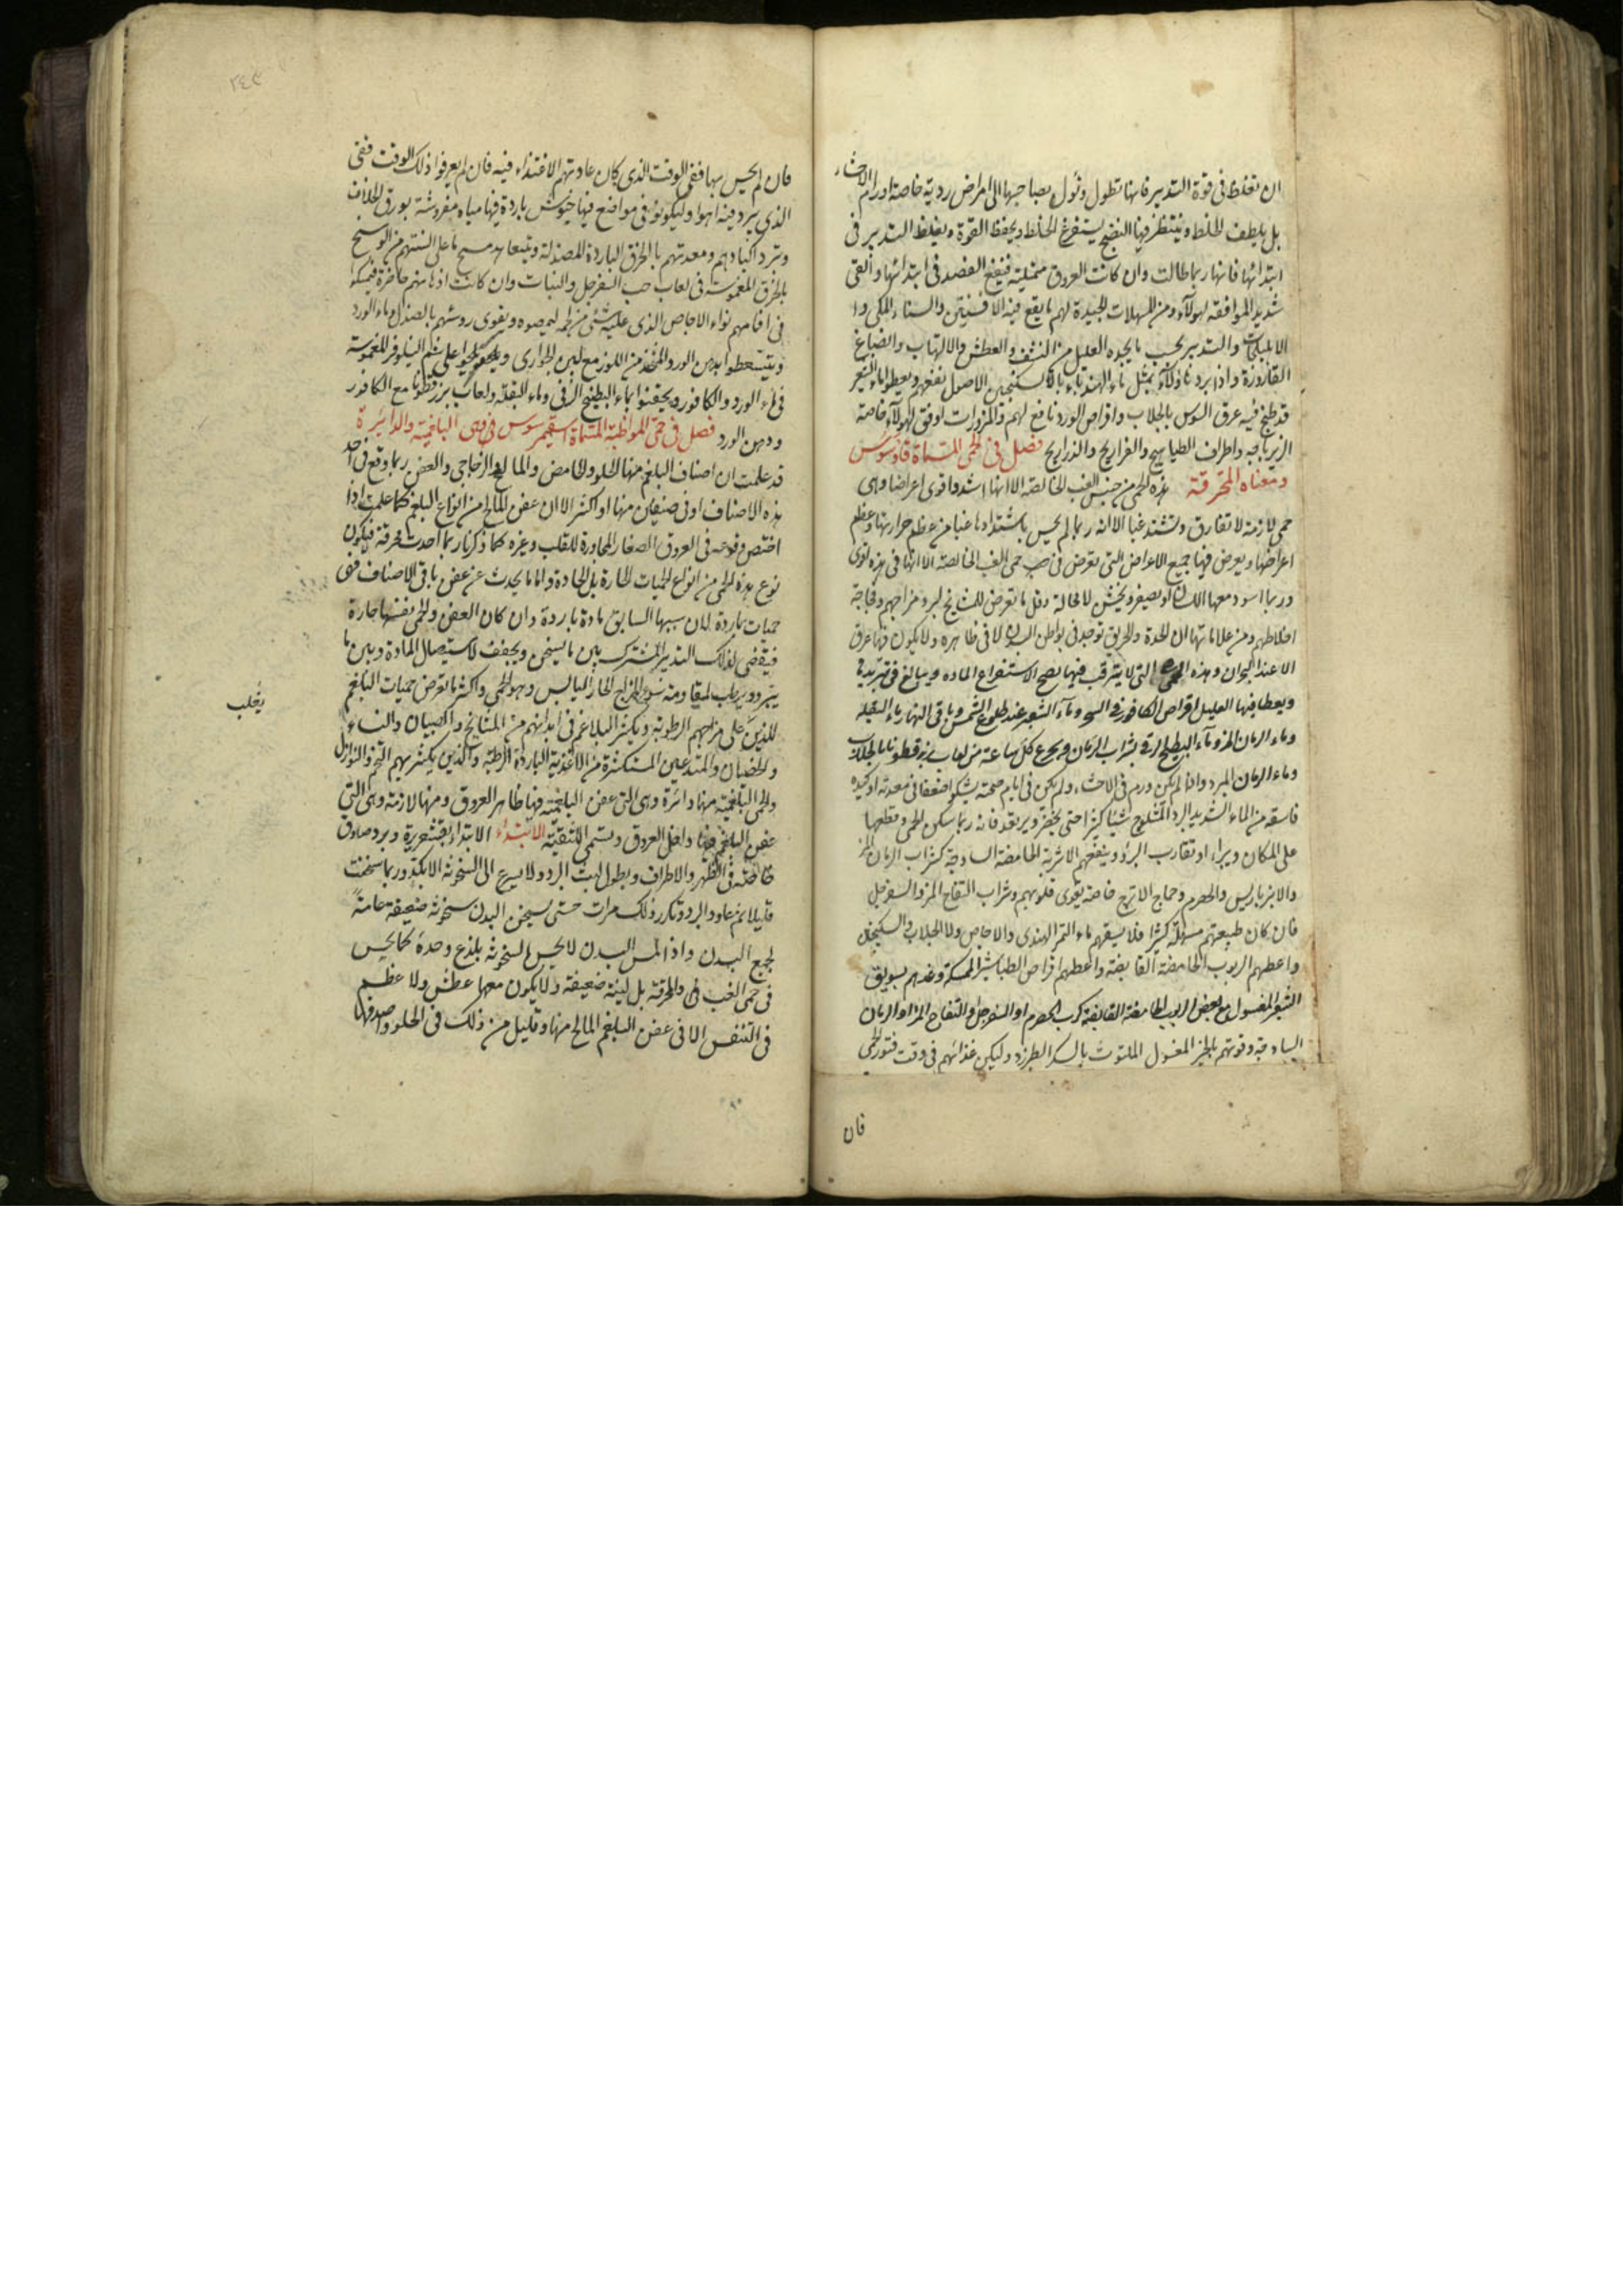 ان تغلظ فى قوة التدبير فانها تطول وتؤل بصاحبها الى امراض ردية خاصة اورام الاحشاء
بل يلطف الخلط وينتظر فيها النضج ليستفرغ الخلط ويحفظ القوة ويغلظ التدبير فى
ابتدائها فانها ربما طالت وان كانت العروق ممتلية فينفع الفصد فى ابتدائها والقى
شديد الموافقة لهولآء ومن المسهلات الجيدة لهم ما يقع فيه الافسنتين والسناء المكى و
والتدبير بحسب ما يجده العليل من والعطش والالتهاب وانصباغ
القارورة واذا برد بمثل ماء الهندباء بالسكنجبين الاصول نفعهم ويعطوا ماء الشعير
قد طبخ فيه عرق السوس بالجلاب واقراص الورد نافع لهم والمزورات اوفق لهولآء خاصة
الزيرباجه واطراف الطياهيج والفراريج والدراريج فصل فى الحمى المسماة قاوسوس
ومعناه المحرقة هذه الحمى من جنس الغب الخالصة الا انها اشد واقوى اعراضا وهى
حمى لازمة لا تفارق وتشتد غبا الا انه ربما لم يحس باشتدادها غبا من عظم حرارتها وعظم
اعراضها ويعرض فيها جميع الاعراض التى تعرض فى حمى الغب الخالصة الا انها فى هذه اقوى
وربما اسود معها اللسان او يصفر ويخشن لا محالة وقل ما تعرض للمشايخ لبرد مزاجهم وفجاجة
اخلاطهم ومن علاماتها ان الحدة والحريق توجد فى بواطن البدن لا فى ظاهره ولا يكون فيها عرق
الا عند البحران وهذه الحمى التى لا يترقب فيها نضج لاستفراغ الماده ويبالغ فى تبريدها
ويعطا فيها العليل اقراص الكافور فى السحر وماء الشعير عند طلوع الشمس وباقى النهار ماء البقله
وماء الرمان المز وماء البطيخ الرقى بشراب الرمان ويجرع كل ساعة من لعاب بزرقطونا بالجلاب
وماء الرمان المبرد واذا لم يكن ورم فى الاحشاء ولم يكن فى ايام صحته يشكو ضعفا فى معدته او كبده
فاسقه من الماء الشديد البرد المثلوج شيئا كثيرا حتى يخضر ويرتعد فانه ربما سكن الحمى وقطعها
على المكان ويبراء او يقارب البرؤ وينفعهم الاشربة الحامضة الساذجة كشراب الرمان المز
والانبرباريس والحصرم وحماض الاترج خاصة يقوى قلوبهم وشراب التفاح المز والسفرجل
فان كان طبيعتهم مسهلة كثيرا فلا يسقهم ماء التمر الهندى والاجاص ولا الجلاب والسكنجبين
واعطهم الربوب الحامضة القابضة واعطهم اقراص الطباشير الممسكة وغدهم بسويق
الشعير المغسول مع بعض الربوب الحامضة القابضة كرب الحصرم او السفرجل او التفاح المز او الرمان
الساذجة وقوتهم بالخبز المغسول الملتوت بالسكر الطبرزد وليكن غذائهم فى وقت فتور الحمى
فان
٢٤٣
فان لم يحس بها ففى الوقت الذى كان عادتهم الاغتذاء فيه فان لم يعرفوا ذلك الوقت ففى
الذى يبرد فيه الهوا وليكونوا فى مواضع فيها خيوش باردة فيها مياه مفروشة بورق الخلاف
وتبرد اكبادهم ومعدتهم بالخرق الباردة المصندلة ويتعاهد مسح ما على السنتهم من الوسخ
بالخرق المغموسة فى لعاب حب السفرجل والنبات وان كانت اذهانهم حاضرة فيمسكوا
فى افامهم نواء الاجاص الذى عليه شئ من لحمه ليمصوه ويقوى روسهم بالصندل وماء الورد
ويستعطوا بدهن الورد والمتخذ من اللوز مع لبن الجوارى ويلحوا على شم النيلوفر المغموسة
فى ماء الورد والكافور ويحقنوا بماء البطيخ الرقى وماء البقلة ولعاب بزرقطونا مع الكافور
ودهن الورد فصل فى حمى المواظبة المسماة وهى البلغمية والدايرة
قد علمت ان اصناف البلغم منها الحلو والحامض والمالح والزجاجى والعفن ربما وقع فى احد
هذه الاصناف او فى صنفين منها او اكثر الا ان عفن المالح من انواع البلغم كما علمت اذا
اختص وقوعه فى العروق الصغار المجاورة للقلب وغيره كما ذكرنا ربما احدث محرقة فيكون
نوع هذه الحمى من انواع الحميات الحارة بل الحادة واما ما يحدث عن عفن باقى الاصناف فهى
حميات باردة لان سببها السابق مادة باردة وان كان العفن والحمى نفسها حارة
فيقضى لذلك التدبير المشترك بين ما يسخن ويجفف لاستيصال المادة وبين ما
يبرد ويرطب لمقاومة سوء المزاج الحار اليابس وهو الحمى واكثر ما تعرض حميات البلغم
للذين على مزاجهم الرطوبة ويكثر البلاغم فى ابدانهم من المشايخ والصبيان والنساء
والخصيان والمتدعين المستكثرة من الاغذية الباردة الرطبة والذين يكثر بهم التخم والنوازل
والحمى البلغمية منها دائرة وهى التى عفن البلغم فيها ظاهر العروق ومنها لازمة وهى التى
عفن البلغم فيها داخل العروق وتسمى اللثقية الابتداء الابتداء بقشعريرة وبرد صادق
خاصة فى الظهر والاطراف ويطول لبث البرد ولا يسرع الى السخونة الا بكد وربما سخنت
قليلا ثم عاود البرد وتكرر ذلك مرات حتى يسخن البدن سخونة ضعيفة عامة
لجميع البدن واذا لمس البدن لا يحس لسخونته بلذع وحدة كما يحس
فى حمى الغب والمحرقة بل لينة ضعيفة ولا يكون معها عطش ولا عظم
فى التنفس الا فى عفن البلغم المالح منها وقليل من ذلك فى الحلو
يغلب